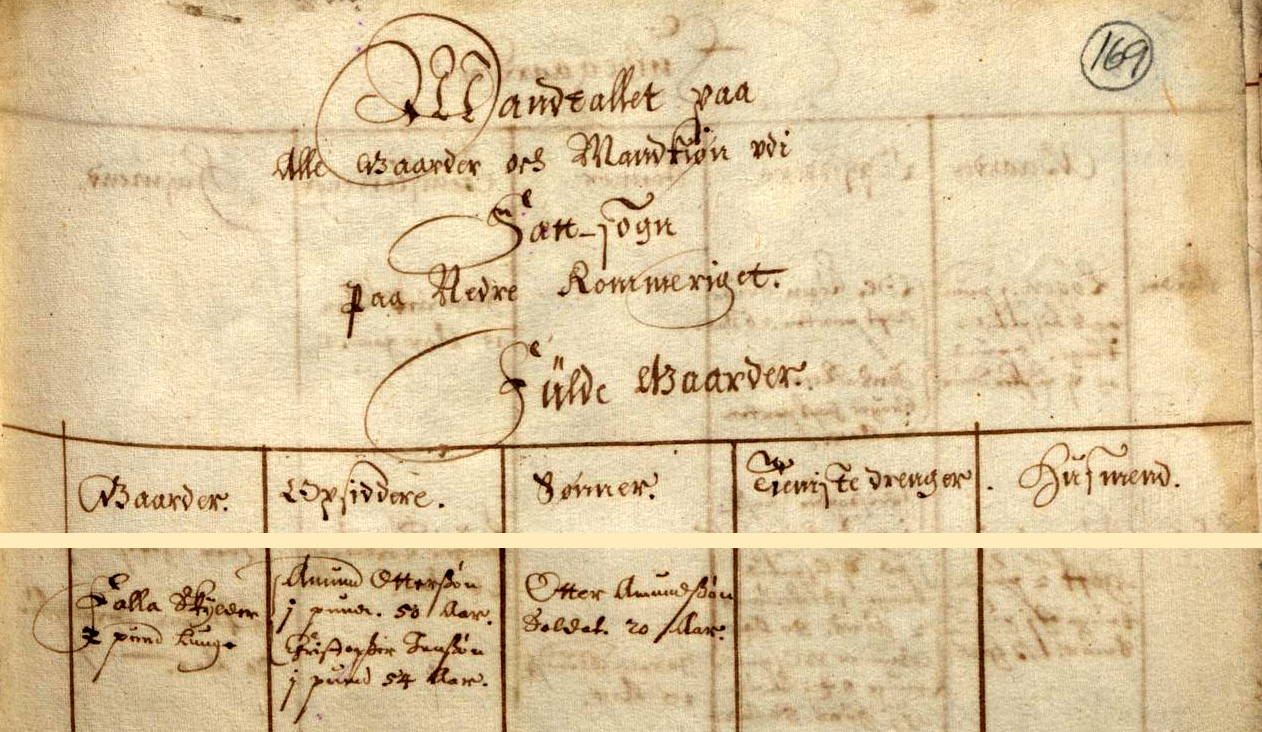 169
Mandtallet paa
Alle Gaarder och Mandkiøn vdi
Fætt-sogn
paa Nedre Rommeriget.
Fülde Gaarder.
Gaarder. Opsiddere. Sønner. Tieniste drenger. Huusmend.
Falla Skylder
2 pund tunge
Amund Otterßøn
j pund. 50 Aar.
Christopher Jenßøn
j pund 54 Aar.
Otter Amundßøn
Soldat. 20 Aar.